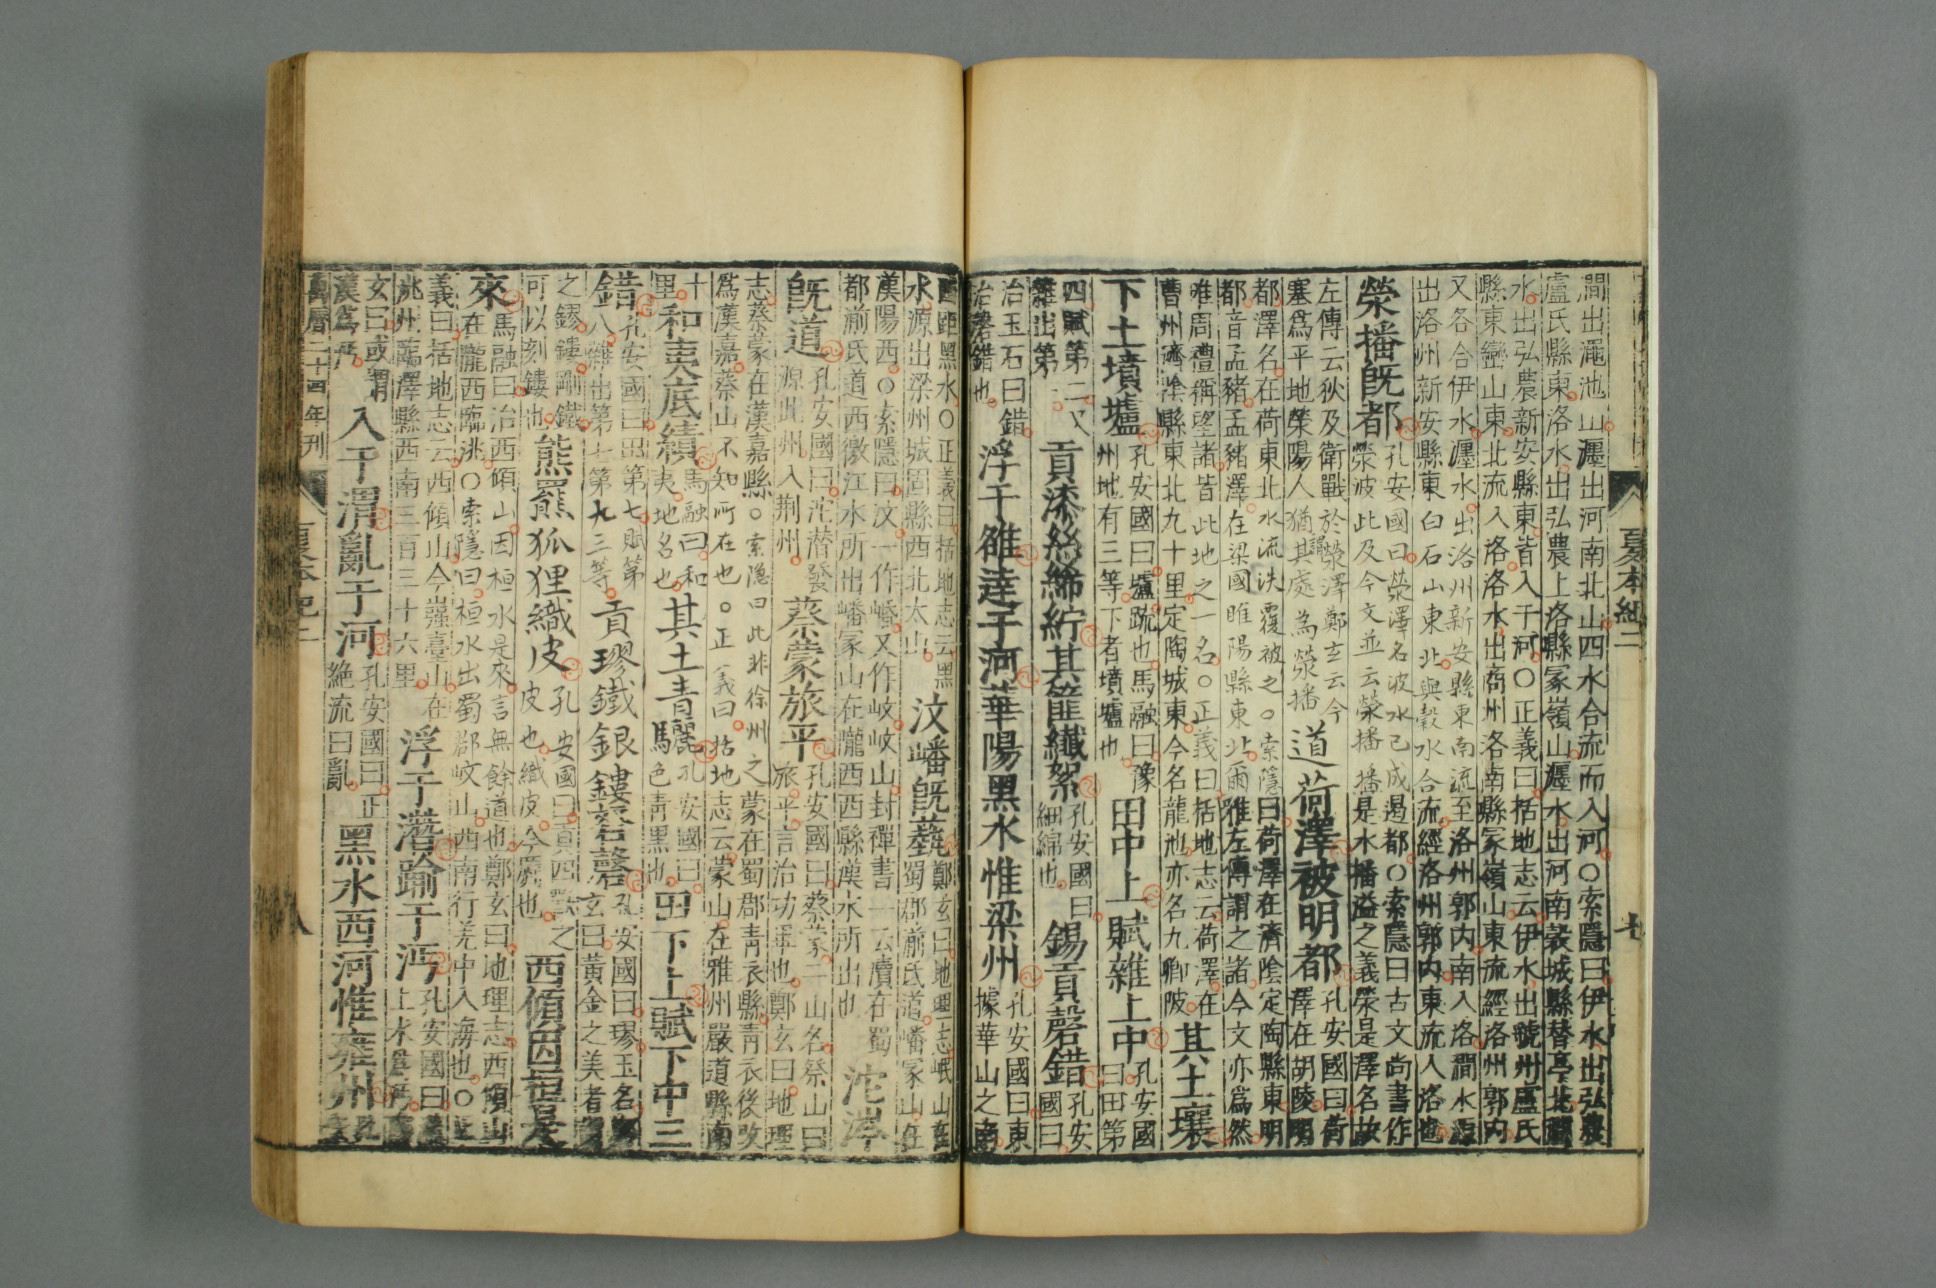 夏本紀二
七
澗出澠池山瀍出河南北山四水合流而入河○索隱曰伊水出弘農
盧氏縣東洛水出弘農上洛縣冢嶺山瀍水出河南穀城縣朁亭北澗
水出弘農新安縣東皆入于河○正義曰括地志云伊水出虢州盧氏
縣東巒山東北流入洛洛水出商州洛南縣冢嶺山東流經洛州郭内
又各合伊水瀍水出洛州新安縣東南流至洛州郭内南入洛澗水源
出洛州新安縣東白石山東北與穀水合流經洛州郭内東流入洛也
滎播既都
孔安國曰滎澤名波水已成遏都○索隱曰古文尚書作
滎波此及今文並云滎播播是水播溢之義滎是澤名故
左傳云狄及衛戰於滎澤鄭玄云今
塞為平地滎陽人猶謂其處為滎播
道荷澤被明都
孔安國曰荷
澤在胡陵明
都澤名在荷東北水流泆覆被之○索隱曰荷澤在濟陰定陶縣東明
都音孟豬孟豬澤在梁國睢陽縣東北爾雅左傳謂之諸今文亦為然
唯周禮稱望諸皆此地之一名○正義曰括地志云荷澤在
曹州濟陰縣東北九十里定陶城東今名龍池亦名九卿陂
其土壤
下土墳壚
孔安國曰壚疏也馬融曰豫
州地有三等下者墳壚也
田中上賦雜上中
孔安國
曰田第
四賦第二又
雜出第一
貢漆絲絺紵其篚纖絮
孔安國曰
細綿也
錫貢磬錯
孔安
國曰
治玉石曰錯
治磬錯也
浮于雒達于河華陽黑水惟梁州
孔安國曰東
據華山之南
西距黑水○正義曰括地志云黑
水源出梁州城固縣西北太山
汶嶓既蓺
鄭玄曰地理志岷山在
蜀郡湔氐道嶓冢山在
漢陽西○索隱曰汶一作㟭又作岐岐山封禪書一云瀆在蜀
都湔氐道西徼江水所出嶓冢山在隴西西縣漢水所出也
沱涔
既道
孔安國曰沱潛發
源此州入荆州
蔡蒙旅平
孔安國曰蔡蒙二山名祭山曰
旅平言治功畢也鄭玄曰地理
志蔡蒙在漢嘉縣○索隱曰此非徐州之蒙在蜀郡青衣縣青衣後改
為漢嘉蔡山不知所在也○正義曰括地志云蒙山在雅州嚴道縣南
十
里
和夷厎績
馬融曰和
夷地名也
其土青驪
孔安國曰
色青黑也
田下上賦下中三
錯
孔安國曰田第七賦第
八雜出第七第九三等
貢璆鐵銀鏤砮磬
孔安國曰璆玉名鄭
玄曰黃金之美者謂
之鏐鏤剛鐵
可以刻鏤也
熊羆狐狸織皮
孔安國曰貢四獸之
皮也織皮今罽也
西傾因桓是
來
馬融曰治西傾山因桓水是來言無餘道也鄭玄曰地理志西傾山
在隴西臨洮○索隱曰桓水出蜀郡岐山西南行羌中入海也○正
義曰括地志云西傾山今嵹臺山在
洮州臨潭縣西南三百三十六里
浮于潛踰于沔
孔安國曰
上水
玄曰或謂
漢為沔
入于渭亂于河
孔安國曰正
絶流曰亂
黑水西河惟雍州
萬曆二十四年刊
夏本紀二
八